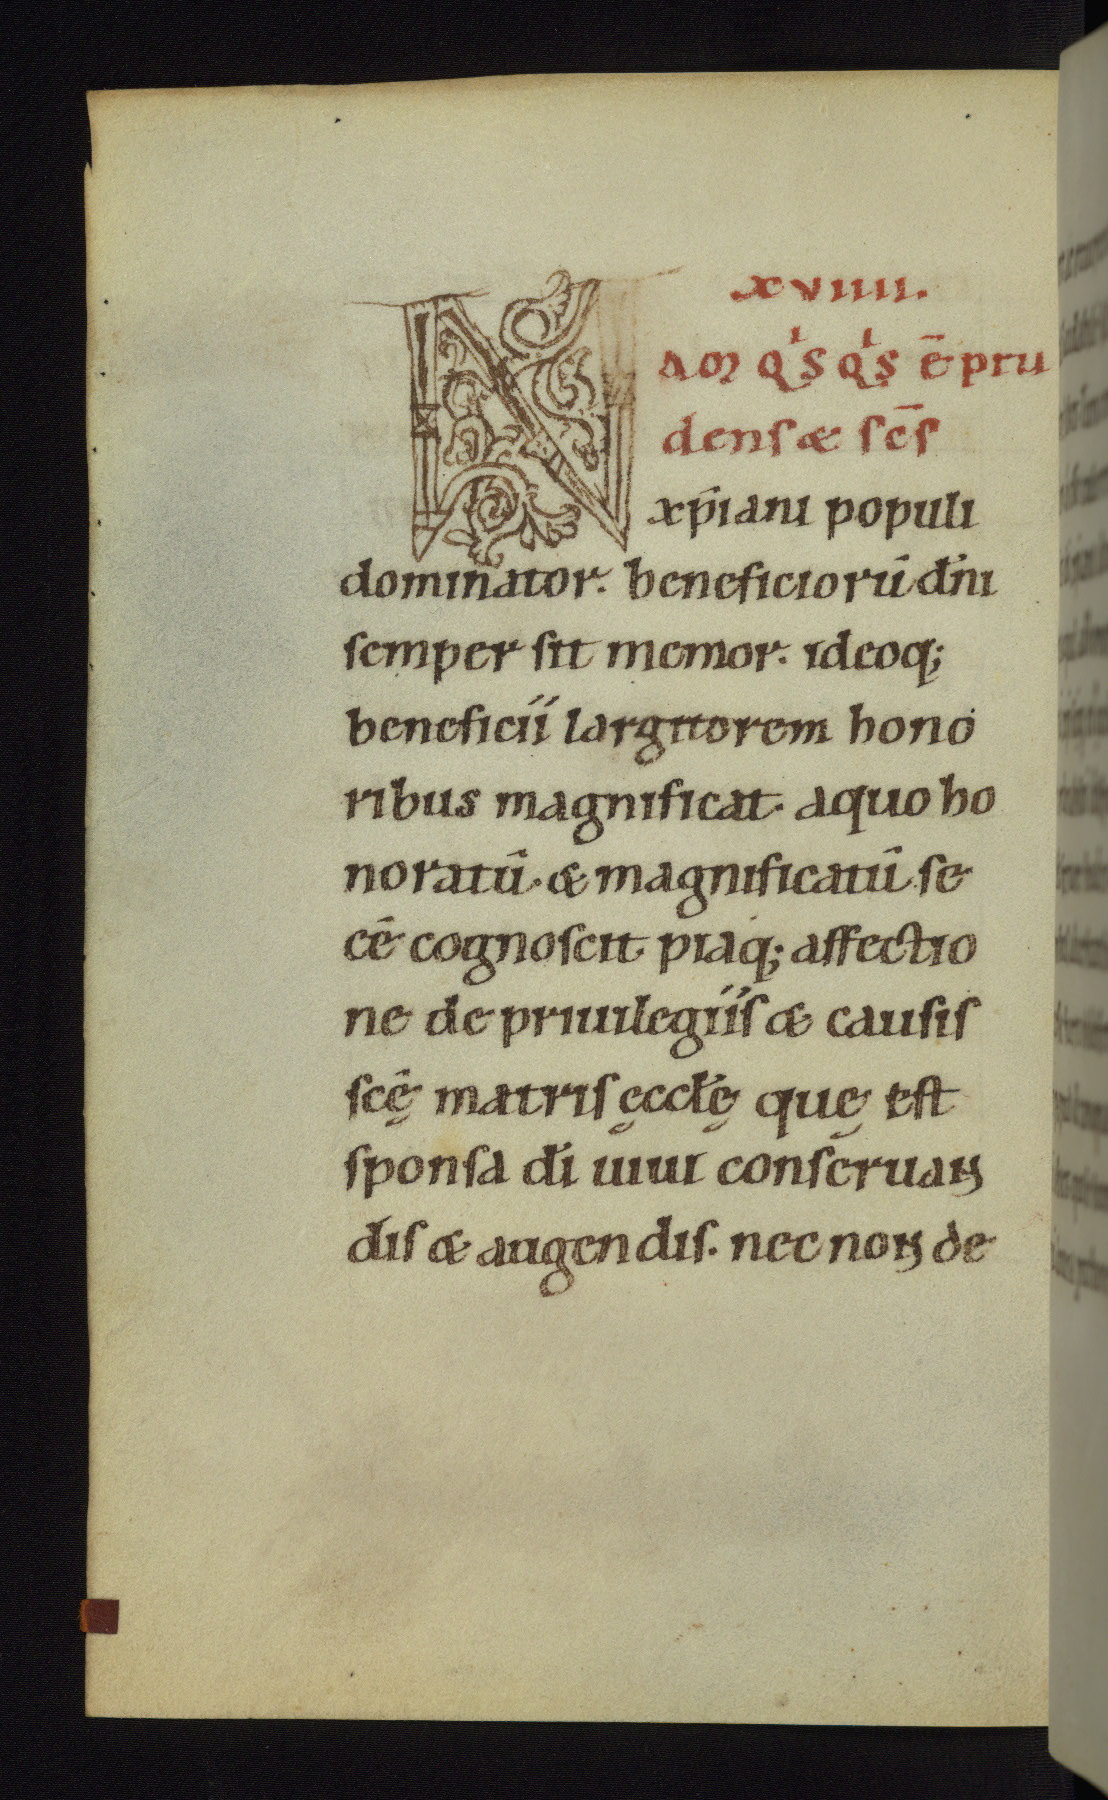 xviiii.
NAM Q'S Q'S ē pru
dens & scs̄
xp̄iani populi
dominator. beneficiorū dn̄i
semper sit memor. ideoq;
beneficii largitorem hono
ribus magnificat. aquo ho
noratū. & magnificatū se
cē cognoscit piaq; affectio
ne de priuilegiis & causis
scę̄ matris ęccłę quę est
sponsa dī uiui conseruan
dis & augendis. nec non de